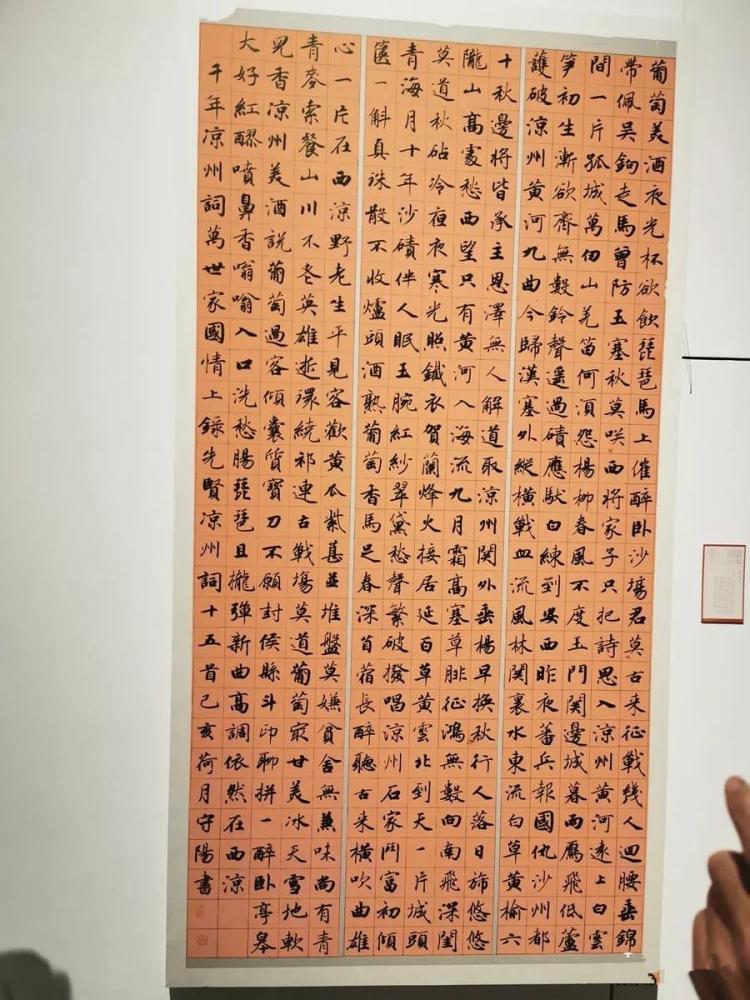 葡萄美酒夜光杯欲飲琵琶馬上催醉卧沙場君莫古來征戰幾人迴腰垂錦
帶佩吳鉤走馬曾防玉塞秋莫咲西將家子只把詩思入涼州黃河遠上白雲
間一片孤城萬仞山羌笛何須怨楊柳春風不度玉門関邊城暮雨雁飛低蘆
笋初生漸欲齊無數鈴聲遥過磧應馱白練到安西昨夜蕃兵報國仇沙州都
護破涼州黃河九曲今歸漢塞外縱橫戰血流風林関裏水東流白草黃榆六
十秋邊將皆承主恩澤無人解道取涼州関外垂楊早換秋行人落日旆悠悠
隴山高處愁西望只有黃河入海流九月霜高塞草腓征鴻無數向南飛深閨
莫道秋砧冷夜夜寒光照鐵衣賀蘭烽火接居延白草黃雲北到天一片城頭
青海月十年沙磧伴人眠玉腕紅紗翠黛愁聲繁破撥唱涼州石家鬥富初傾
篋一斛真珠散不收爐頭酒熟葡萄香馬足春深苜蓿長醉聽古來橫吹曲雄
心一片在西涼野老生平見客歡黃瓜紫葚並堆盤莫嫌貧舍無兼味尚有青
青麥索餐山川不老英雄逝環繞祁連古戰場莫道葡萄最甘美冰天雪地軟
兒香涼州美酒說葡萄過客傾囊質寶刀不願封侯縣斗印聊拼一醉卧亭皋
大好紅醪噴鼻香嗡嗡入口洗愁腸琵琶且攏弹新曲高調依然在西涼
千年涼州詞萬世家國情上錄先賢涼州詞十五首己亥荷月守陽書